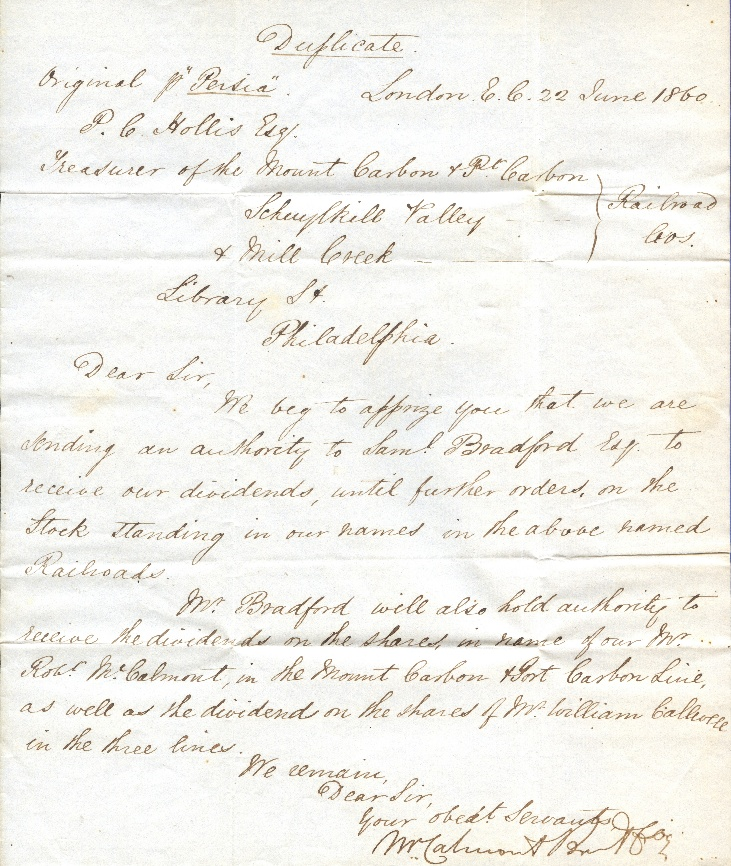 Duplicate.
Original pr "Persia".
London. E. C. 22 June 1860
P. C. Hollis Esq.
Treasurer of the Mount Carbon & Pt Carbon
Schuylkill Valley
& Mill Creek
Railroad
Cos.
Library St.
Philadelphia.
Dear Sir,
We beg to apprize you that we are
sending an authority to Saml. Bradford Esq. to
receive our dividends, until further orders, on the
Stock standing in our names in the above named
Railroads.
Mr. Bradford will also hold authority to
receive the dividends on the shares, in name of our Mr.
Robt McCalmont, in the Mount Carbon & Port Carbon Line,
as well as the dividend on the shares of Mr. William
in the three lines.
We remain,
Dear Sir,
Your obedt Servants
McCalmont Bros & Co